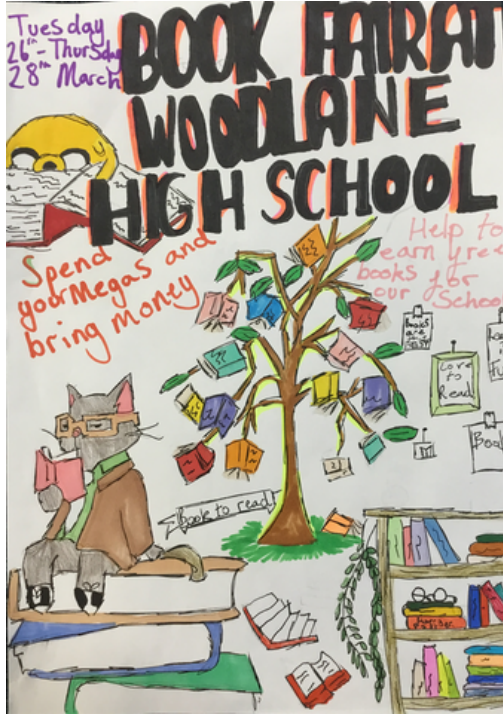 Tuesday
26th - Thursday
28th March
BOOK FAIR AT
WOODLANE
HIGH SCHOOL
Spend
your Megas and
bring money
Help to
earn free
books for
our School
Books
are
Love
to
Read
Book
Book to read!